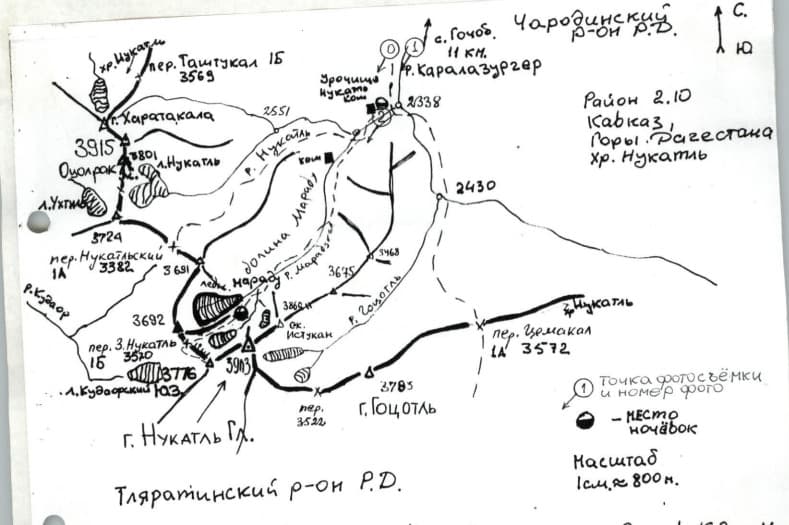 Чародинский
р-он Р.Д.
С.
Ю
с. Гочоб.
11 км.
0
1
хр. Нукатль
пер. Таштукал 1Б
3569
р. Каралазургер
Урочище
Нукатль
кош
2338
2
Район 2.10
Кавказ,
Горы Дагестана
хр. Нукатль
г. Харатакала
2551
3915
3801
Оцолрак
л. Нукатль
р. Нукатль
кош
2430
л. Ухтиль
3724
пер. Нукатльский
1А 3382
3691
долина Марадз
р. Марадзе
ледн. Марадз
3468
3675
р. Гоцотль
р. Кудаор
3692
ск.
Истукан
хр. Нукатль
пер. З. Нукатль
1Б 3570
3776
ЮЗ.
л. Кудаорский
3903
пер. Цемакал
1А 3572
3783
пер.
3522
г. Гоцотль
г. Нукатль Гл.
1 Точка фотосъёмки
и номер фото
- место
ночёвок
Масштаб
1 см. ≈ 800 м.
Тляратинский р-он Р.Д.